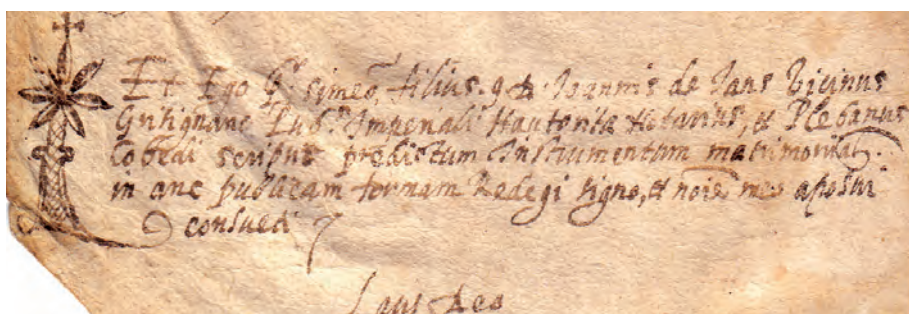 Et Ego Pr. Simeō, filius. qđ. Joannis de Jans Vicinus
Gritignane Pub.s Imperiali Hautorita Notarius, et Plebanus
Cobedi scripsi predictum Instrumentum matrimonial.
in anc publicam formam Redegi signo, et noīe meo aposui
consueti
Laus Deo